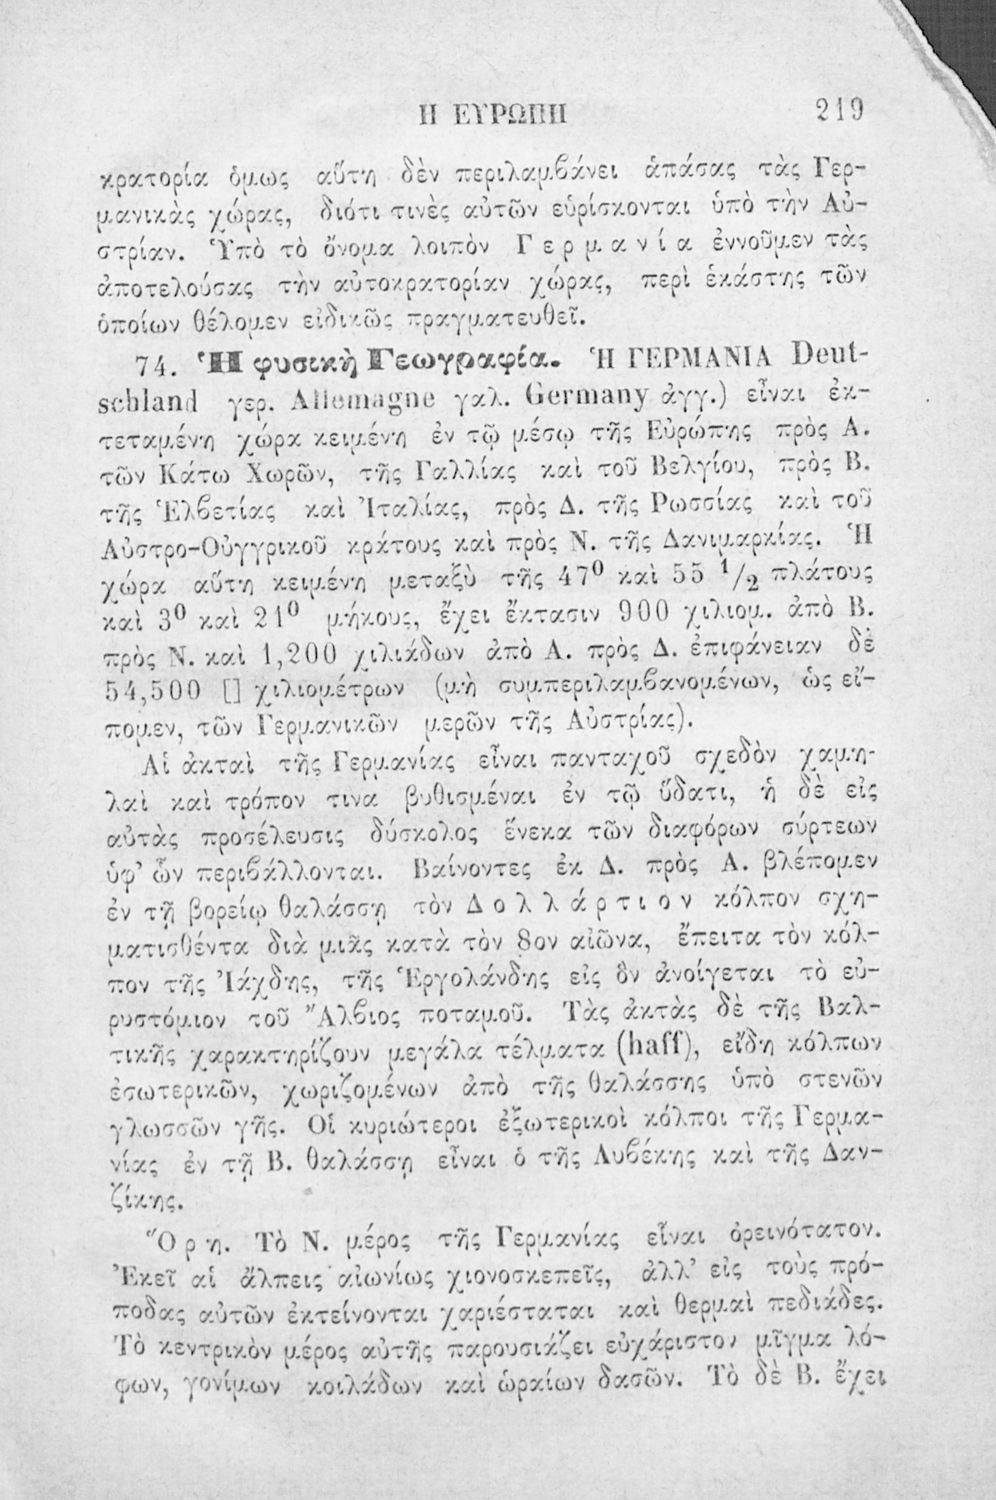 Η ΕΥΡΩΠΗ 219
κρατορία ὅμως αὕτη δὲν περιλαμβάνει ἁπάσας τὰς Γερ-
μανικὰς χώρας, διότι τινὲς αὐτῶν εὑρίσκονται ὑπὸ τὴν Αὐ-
στρίαν. Ὑπὸ τὸ ὄνομα λοιπὸν Γερμανία ἐννοῦμεν τὰς
ἀποτελούσας τὴν αὐτοκρατορίαν χώρας, περὶ ἑκάστης τῶν
ὁποίων θέλομεν εἰδικῶς πραγματευθεῖ.
74. Ἡ φυσικὴ Γεωγραφία. Ἡ ΓΕΡΜΑΝΙΑ Deut-
schland γερ. Allemagne γαλ. Germany ἀγγ.) εἶναι ἐκ-
τεταμένη χώρα κειμένη ἐν τῷ μέσῳ τῆς Εὐρώπης πρὸς Α.
τῶν Κάτω Χωρῶν, τῆς Γαλλίας καὶ τοῦ Βελγίου, πρὸς Β.
τῆς Ἑλβετίας καὶ Ἰταλίας, πρὸς Δ. τῆς Ρωσσίας καὶ τοῦ
Αὐστρο-Οὑγγρικοῦ κράτους καὶ πρὸς Ν. τῆς Δανιμαρκίας. Ἡ
χώρα αὕτη κειμένη μεταξὺ τῆς 47⁰ καὶ 55 1/2 πλάτους
καὶ 3⁰ καὶ 21⁰ μήκους, ἔχει ἔκτασιν 900 χιλιομ. ἀπὸ Β.
πρὸς Ν. καὶ 1,200 χιλιάδων ἀπὸ Α. πρὸς Δ. ἐπιφάνειαν δὲ
54,500 [] χιλιομέτρων (μὴ συμπεριλαμβανομένων, ὡς εἴ-
πομεν, τῶν Γερμανικῶν μερῶν τῆς Αὐστρίας).
Αἱ ἀκταὶ τῆς Γερμανίας εἶναι πανταχοῦ σχεδὸν χαμη-
λαὶ καὶ τρόπον τινα βυθισμέναι ἐν τῷ ὕδατι, ἡ δὲ εἰς
αὐτὰς προσέλευσις δύσκολος ἕνεκα τῶν διαφόρων σύρτεων
ὑφ' ὧν περιβάλλονται. Βαίνοντες ἐκ Δ. πρὸς Α. βλέπομεν
ἐν τῇ βορείῳ θαλάσσῃ τὸν Δολλάρτιον κόλπον σχη-
ματισθέντα διὰ μιᾶς κατὰ τὸν 8ον αἰῶνα, ἔπειτα τὸν κόλ-
πον τῆς Ἰάχδης, τῆς Ἑργολάνδης εἰς ὃν ἀνοίγεται τὸ εὐ-
ρυστόμιον τοῦ Ἄλβιος ποταμοῦ. Τὰς ἀκτὰς δὲ τῆς Βαλ-
τικῆς χαρακτηρίζουν μεγάλα τέλματα (haff), εἴδη κόλπων
ἐσωτερικῶν, χωριζομένων ἀπὸ τῆς θαλάσσης ὑπὸ στενῶν
γλωσσῶν γῆς. Οἱ κυριώτεροι ἐξωτερικοὶ κόλποι τῆς Γερμα-
νίας ἐν τῇ Β. θαλάσσῃ εἶναι ὁ τῆς Λυβέκης καὶ τῆς Δαν-
ζίκης.
Ὄρη. Τὸ Ν. μέρος τῆς Γερμανίας εἶναι ὀρεινότατον.
Ἐκεῖ αἱ ἄλπεις αἰωνίως χιονοσκεπεῖς, ἀλλ' εἰς τοὺς πρό-
ποδας αὐτῶν ἐκτείνονται χαριέσταται καὶ θερμαὶ πεδιάδες.
Τὸ κεντρικὸν μέρος αὐτῆς παρουσιάζει εὐχάριστον μῖγμα λό-
φων, γονίμων κοιλάδων καὶ ὡραίων δασῶν. Τὸ δὲ Β. ἔχει